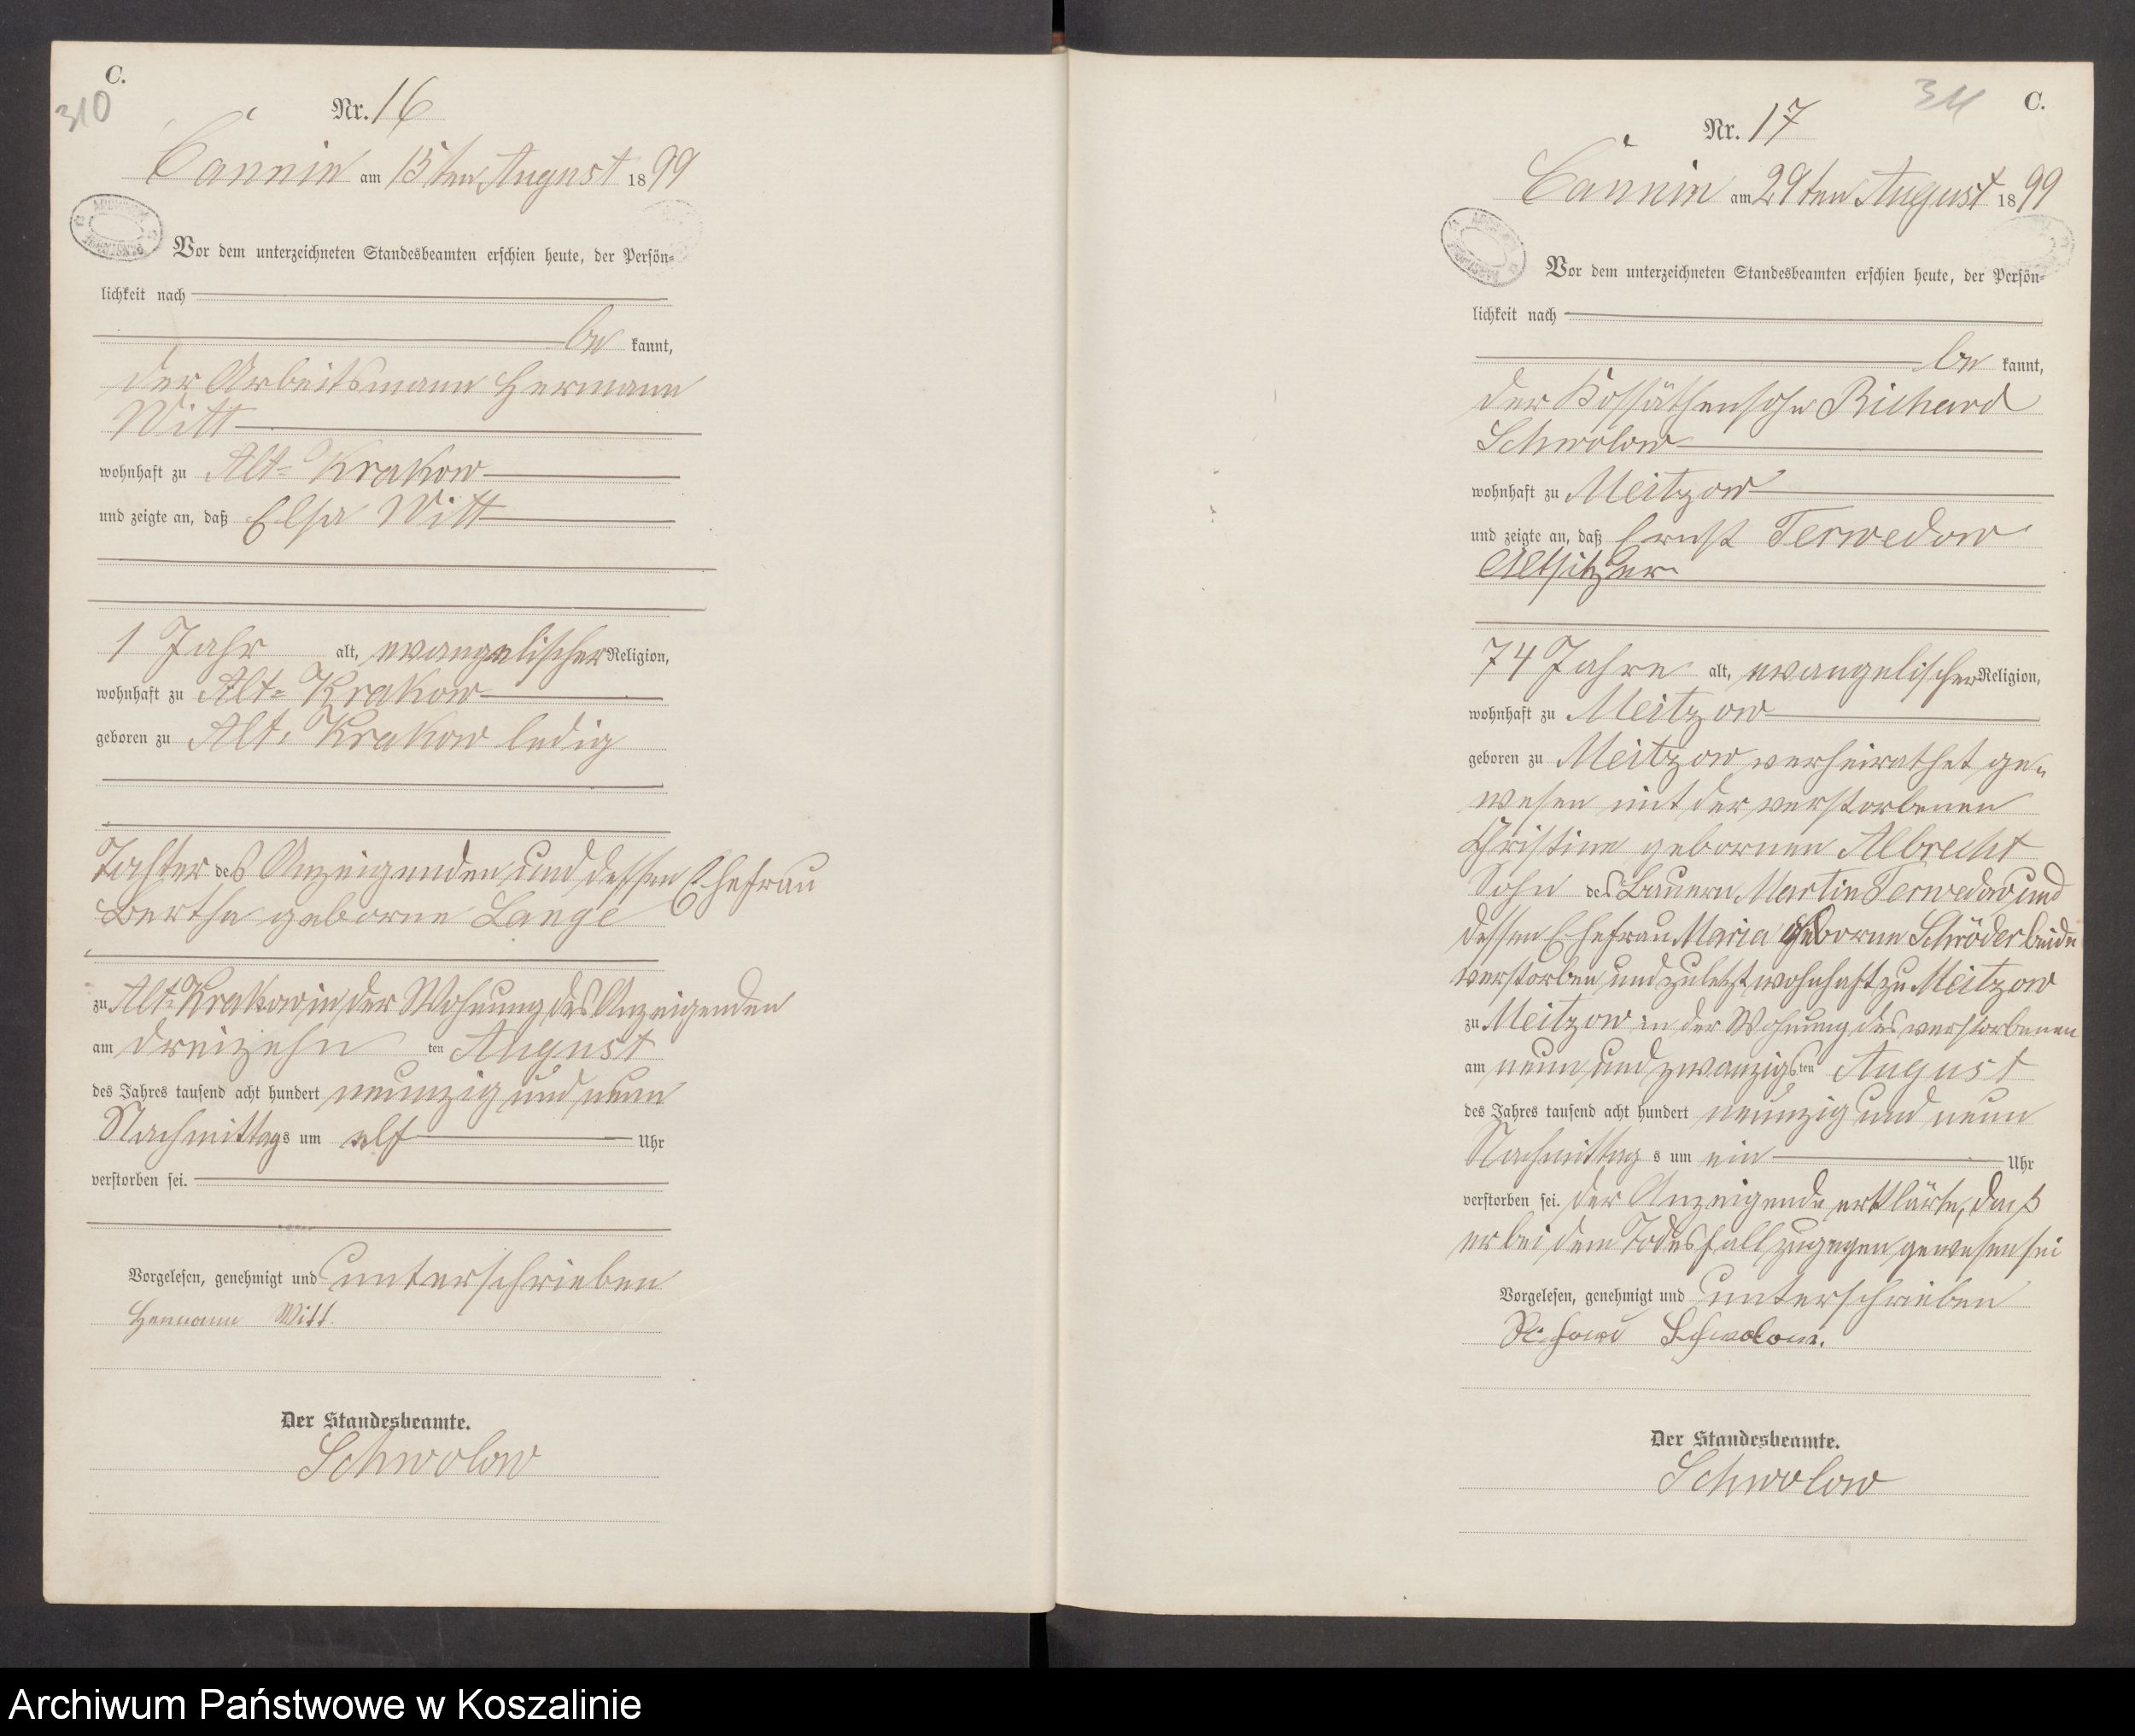 C.
310
Nr. 16
Cannin am 15ten August 1899
Vor dem unterzeichneten Standesbeamten erschien heute, der Persön=
lichkeit nach
be kannt,
der Arbeitsmann Hermann
Witt
wohnhaft zu Alt=Krakow
und zeigte an, daß Elsa Witt
1 Jahr alt, evangelischer Religion,
wohnhaft zu Alt=Krakow
geboren zu Alt=Krakow ledig
Tochter des Anzeigenden und dessen Ehefrau
Bertha geborne Lange
zu Alt=Krakow in der Wohnung des Anzeigenden
am dreizehn ten August
des Jahres tausend acht hundert neunzig und neun
Nachmittags um elf Uhr
verstorben sei.
Vorgelesen, genehmigt und unterschrieben
Hermann Witt.
Der Standesbeamte.
Schwolow
311
C.
Nr. 17
Cannin am 29ten August 1899
Vor dem unterzeichneten Standesbeamten erschien heute, der Persön=
lichkeit nach
be kannt,
der Kossäthensohn Richard
Schwolow
wohnhaft zu Meitzow
und zeigte an, daß Ernst Terwedow
Altsitzer
74 Jahre alt, evangelischer Religion,
wohnhaft zu Meitzow
geboren zu Meitzow verheirathet ge=
wesen mit der verstorbenen
Christine gebornen Albrecht
Sohn des Bauern Martin Terwedow und
dessen Ehefrau Maria geborne Schröder beide
verstorben und zuletzt wohnhaft zu Meitzow
zu Meitzow in der Wohnung des verstorbenen
am neun und zwanzigsten August
des Jahres tausend acht hundert neunzig und neun
Nachmittag s um ein Uhr
verstorben sei. Der Anzeigende erklärte, daß
er bei dem Todesfall zugegen gewesen sei
Vorgelesen, genehmigt und unterschrieben
Richard Schwolow.
Der Standesbeamte.
Schwolow
Archiwum Państwowe w Koszalinie